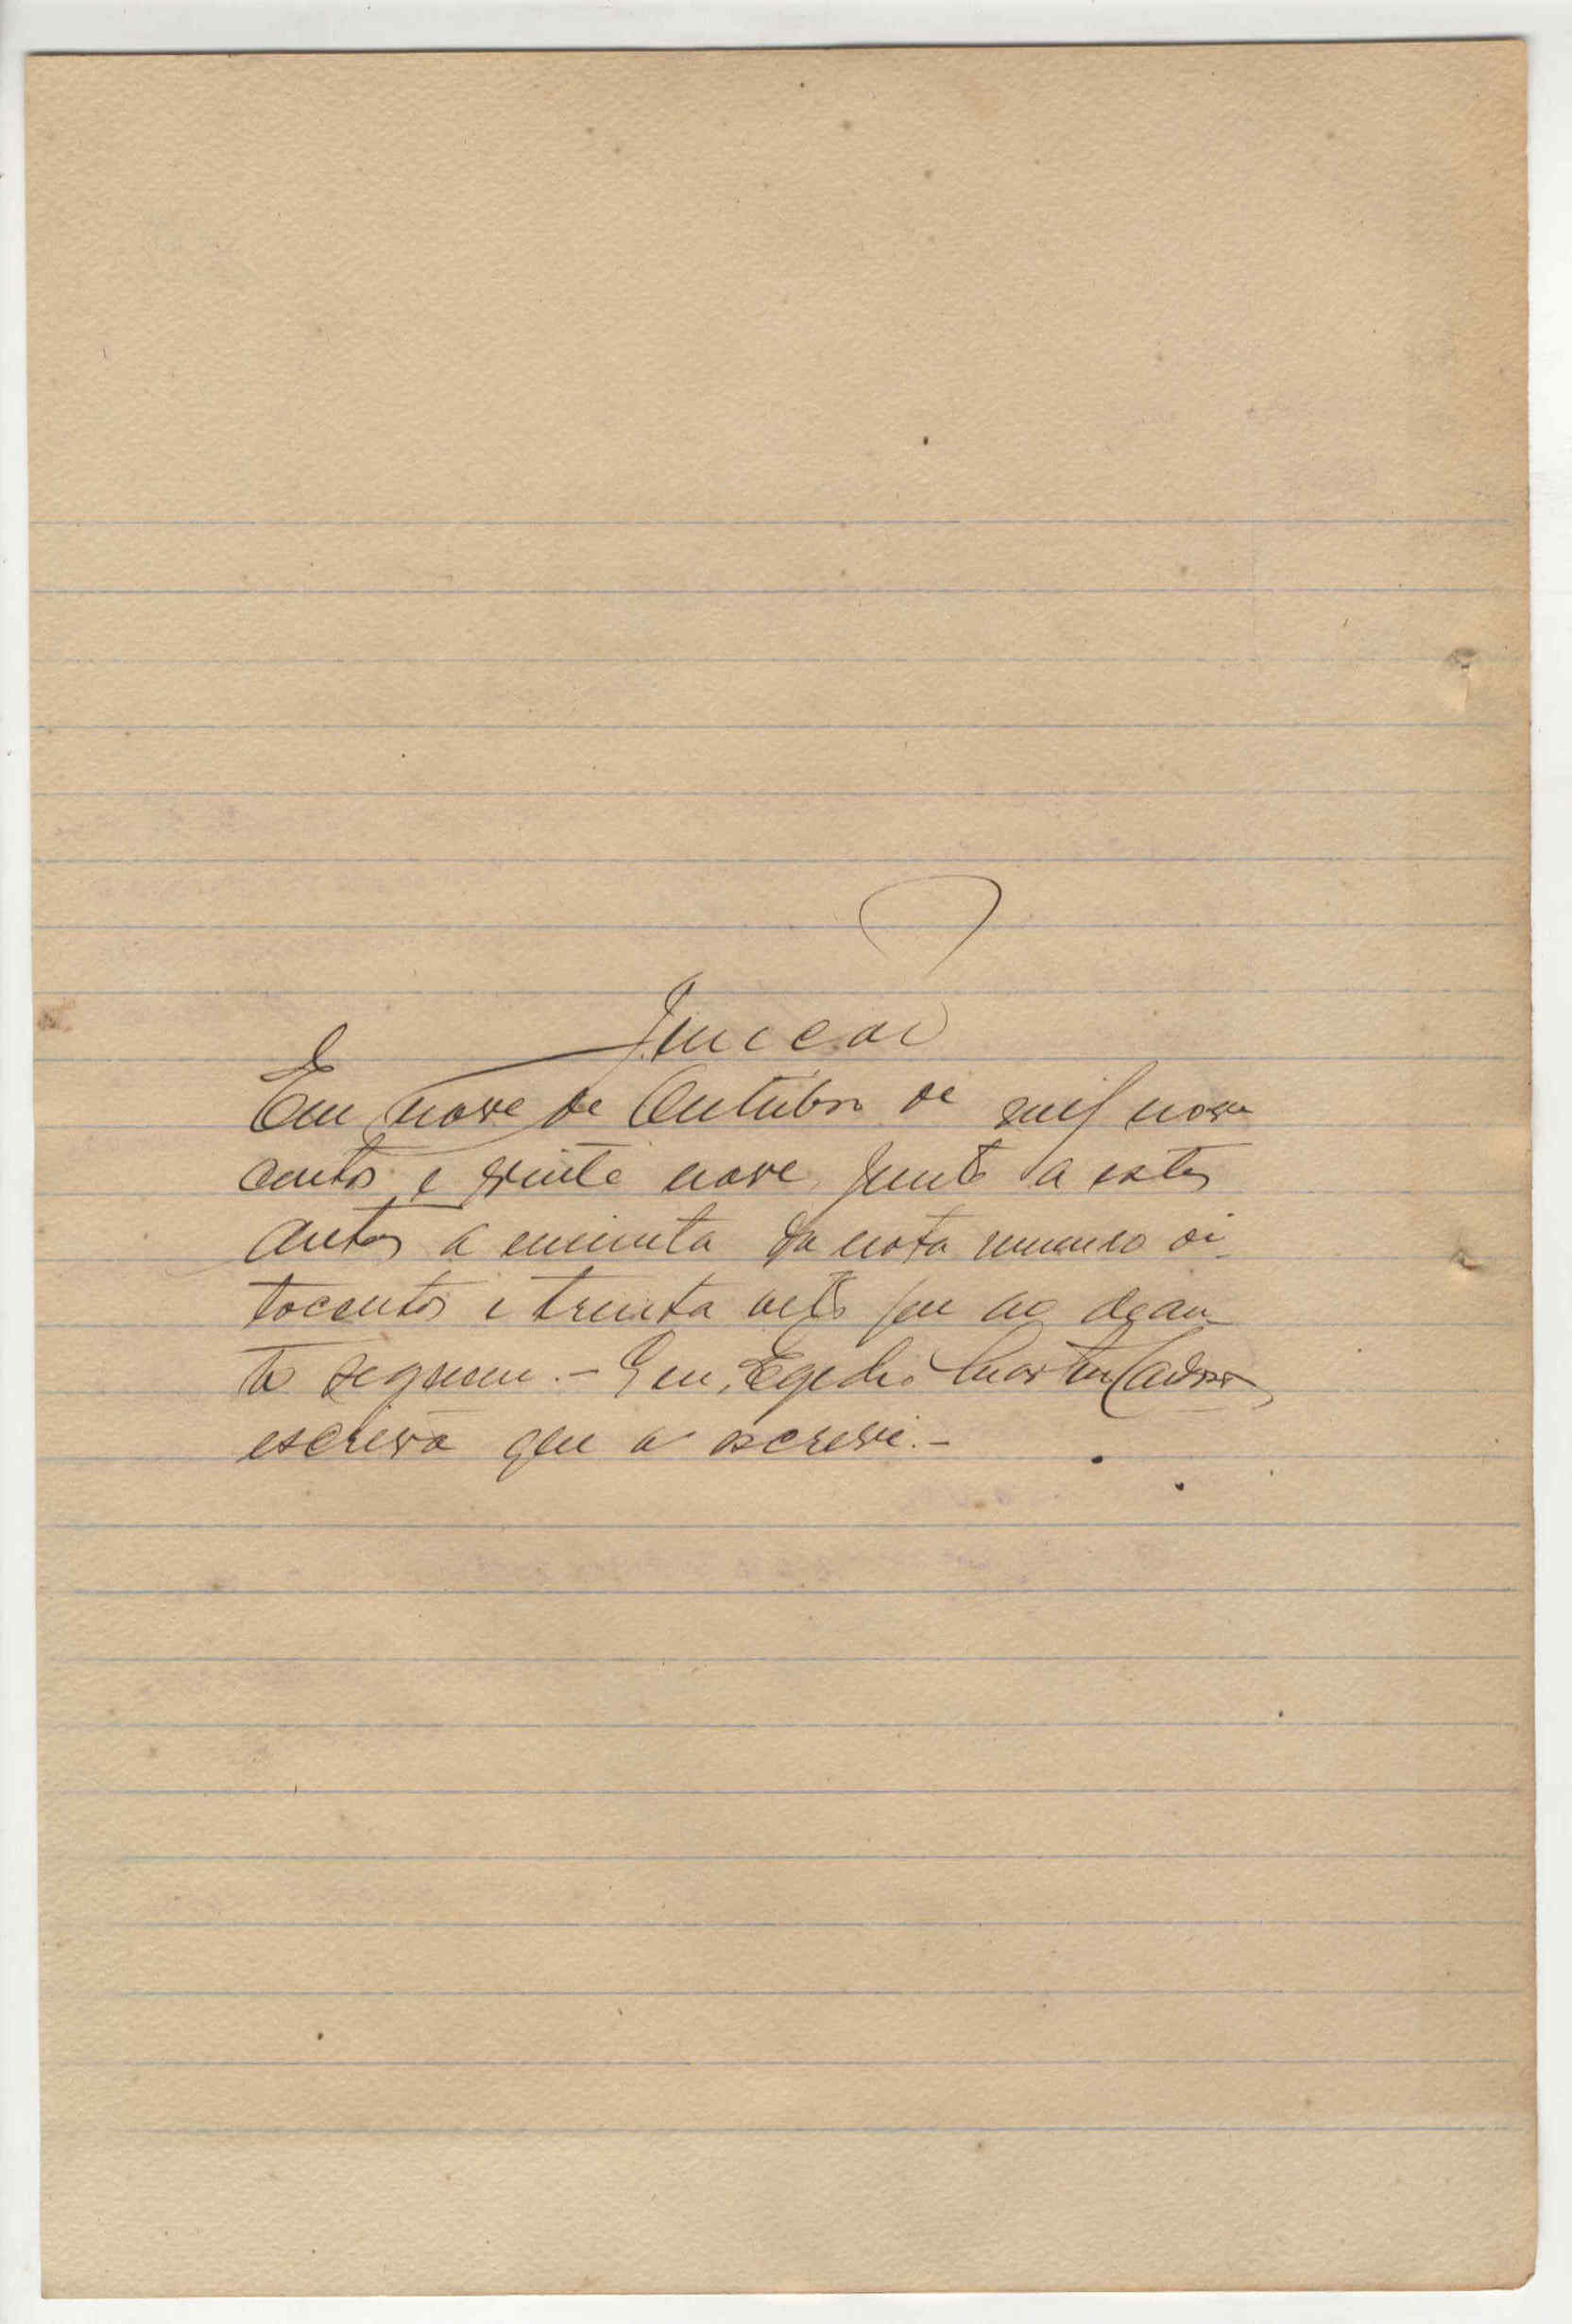 Junccao
Em nove de Outubro de mil nove
centos e vinte nove, junto a estes
autos a minuta da nota numero oi-
tocentos e trinta oito que ao dean-
te seguem. - Eu, Egedio Martins Cardoso
escrivão que o escrevi. -